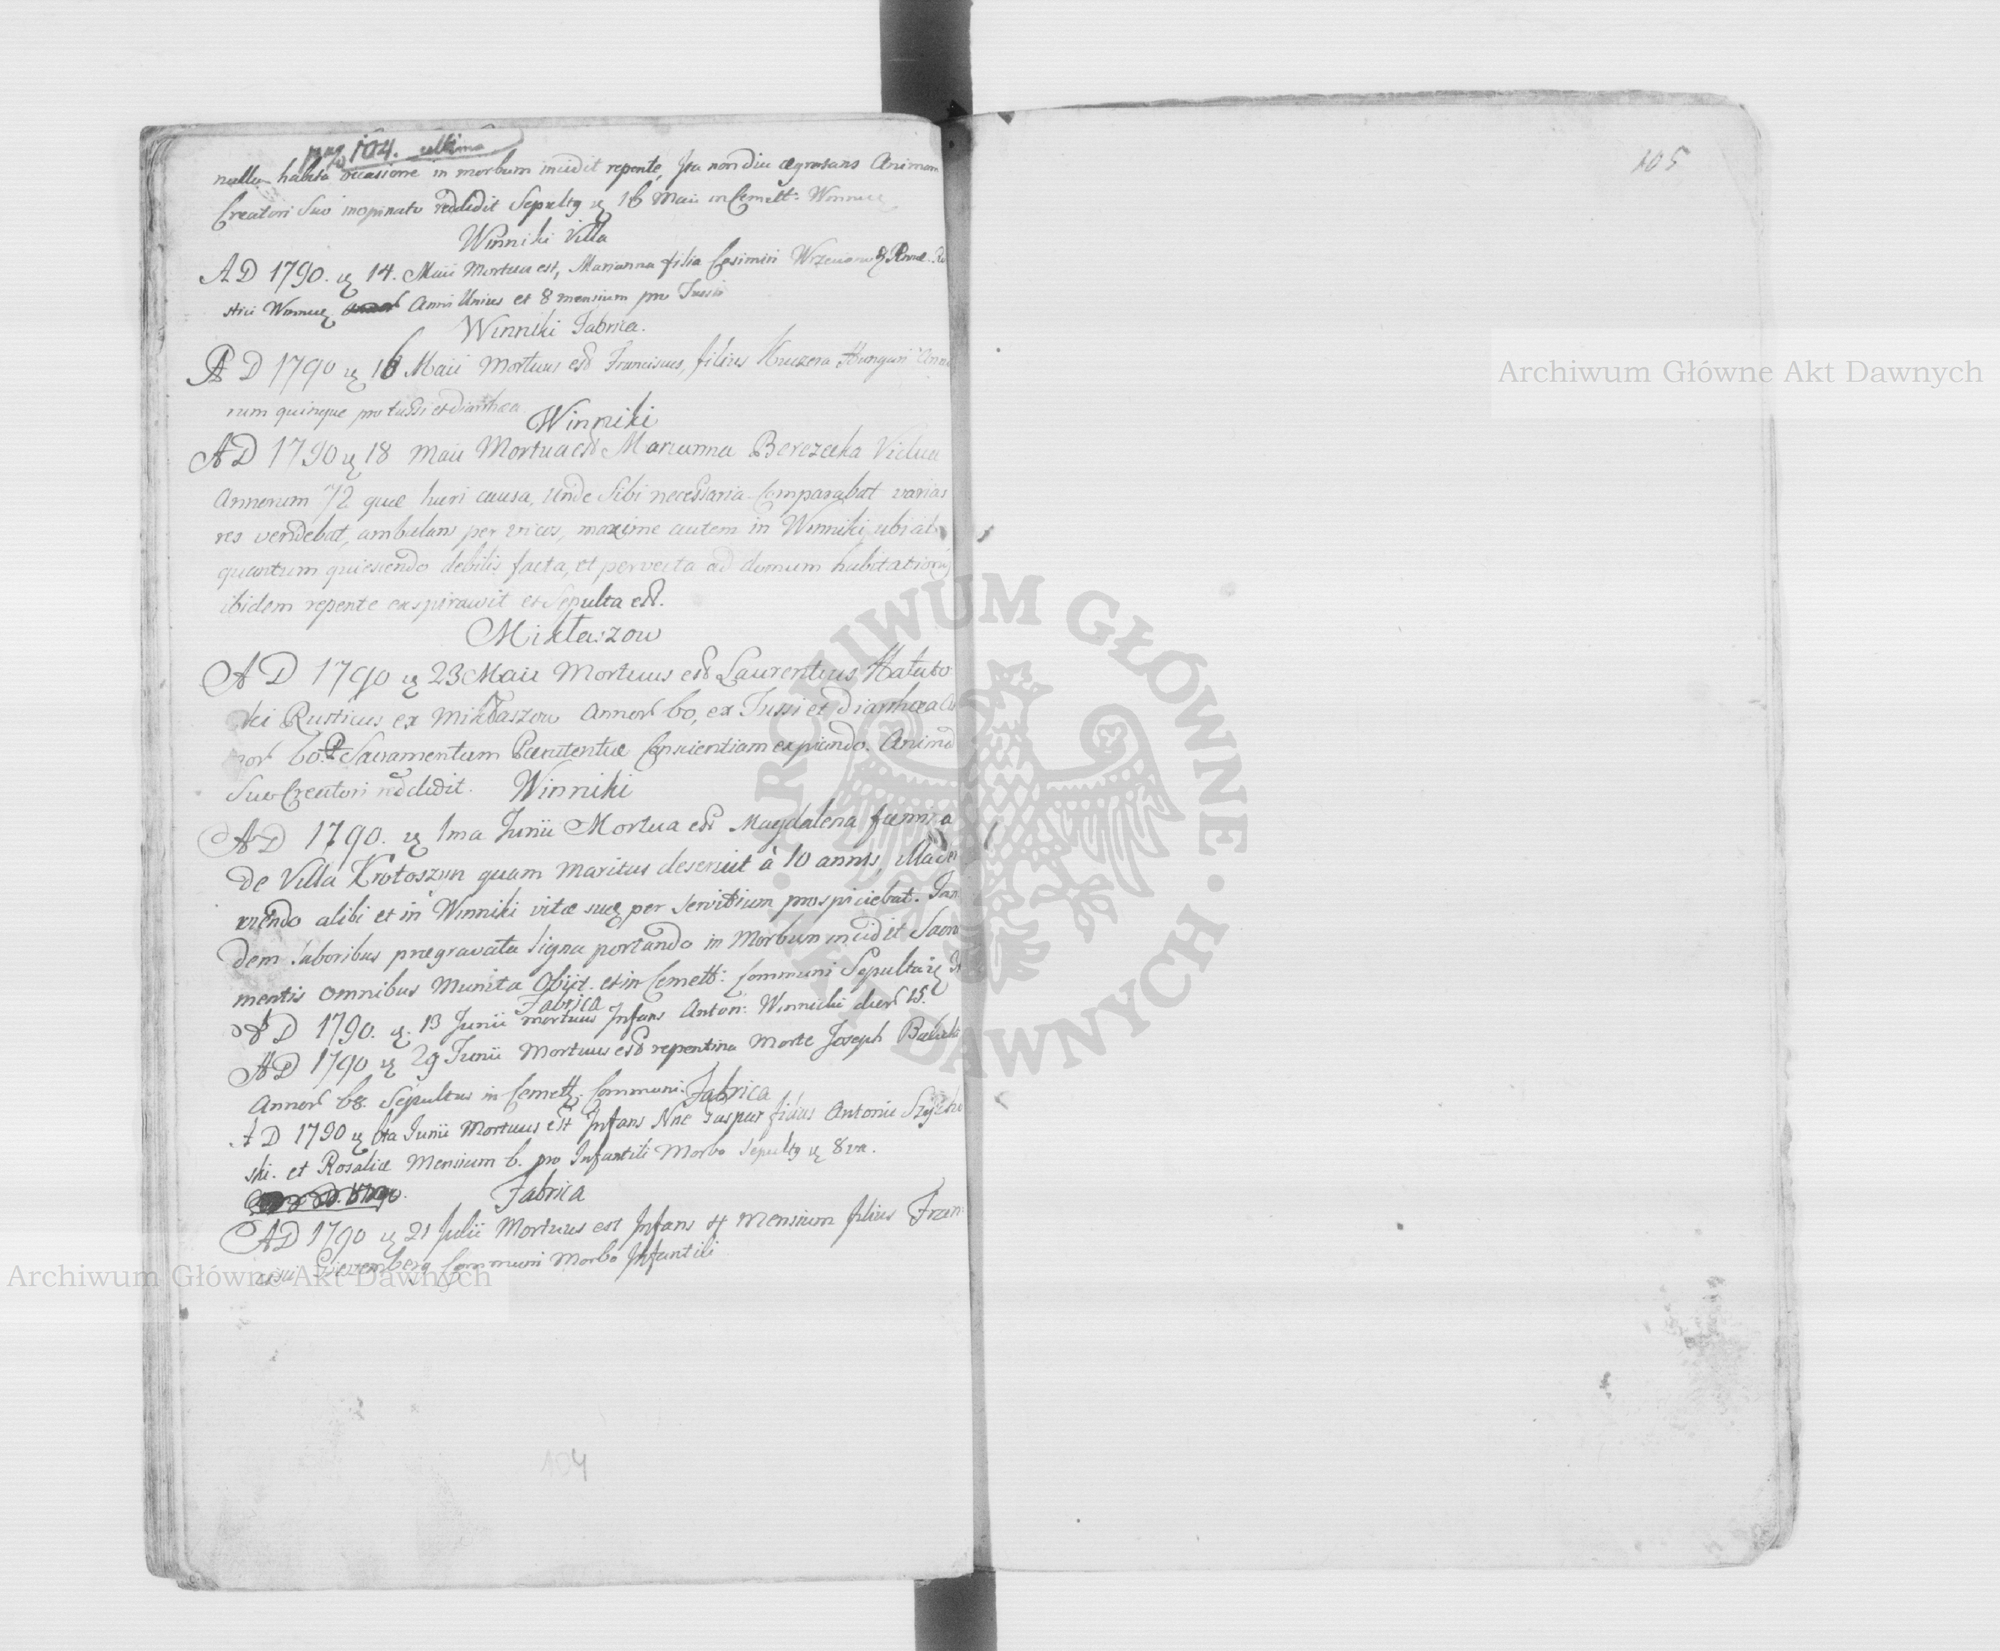 pag 104. ultima
nulla habita occasione in morbum incidit repente, Ita non diu aegrotans Animam
Creatori Suo inopinato reddidit Sepultq 16 Maii in Cemett:
Winniki Villa
AD 1790. 14. Maii Mortua est, Marianna filia Casimiri
Anni Unius et 8 mensium pro Tussi
Winniki Fabrica.
AD 1790 16 Maii Mortuus est Franciscus, filius Hungari Anno
rum quinque pro tussi et diarrhaea
Winniki
AD 1790 18 Maii Mortua est Marianna Berezecka Vidua
Annorum 72 quae lucri causa, unde Sibi necessaria comparabat varias
res vendebat, ambulans per vicos, maxime autem in Winniki, ubi ali
quantum quiescendo debilis facta, et pervecta ad domum habitationis
ibidem repente exspiravit et Sepulta est.
Mikłaszow
AD 1790 23 Maii Mortuus est Laurentius
ki Rusticus ex Mikłaszow Annor 60, ex Tussi et Diarrhaea An
nor 60. P Sacramentum Paenitentiae Conscientiam expiando. Animã
Suo Creatori reddidit. Winniki
AD 1790. 1ma Junii Mortua est Magdalena faemina
de Villa Krotoszyn quam maritus deseruit à 10 annis,
viendo alibi et in Winniki vitae suae per servitium prospiciebat. Tan
dem laboribus praegravata ligna portando in Morbum incidit Sacra
mentis omnibus munita Obijt. et in Cemett: Communi Sepulta
Fabrica
AD 1790. 13 Junii mortuus Infans Anton: Winnicki dier 15.
AD 1790 29 Junii Mortuus est repentina Morte Joseph
Annor 68. Sepultus in Cemett: Communi. Fabrica
AD 1790 Junii Mortuus est Infans Nne Caspar filius Antonii
ski. et Rosaliae Mensium 6. pro Infantili Morbo Sepultq 8va.
Fabrica
AD 1790 21 Julii Mortuus est Infans 4 Mensium filius Fran
Communi Morbo Infantili
104
105
Archiwum Główne Akt Dawnych
Archiwum Główne Akt Dawnych
ARCHIWUM GŁÓWNE · AKT DAWNYCH ·